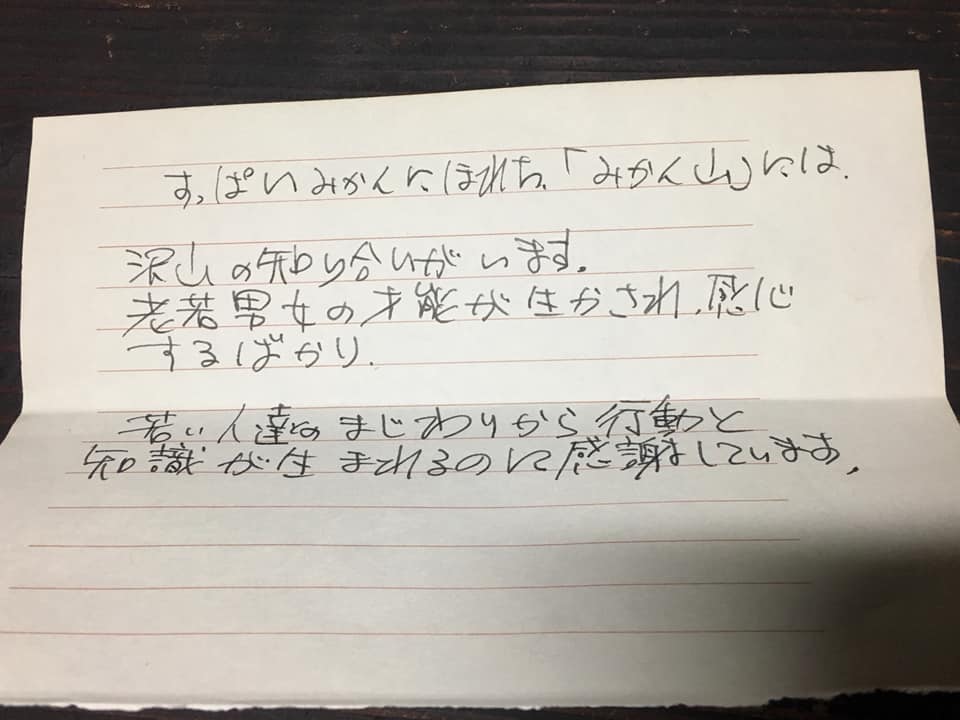 すっぱいみかんにほれち、「みかん山」には、
沢山の知り合いがいます。
老若男女の才能が生かされ、感心
するばかり、
若い人達とのまじわりから行動と
知識が生まれるのにて感謝しています。